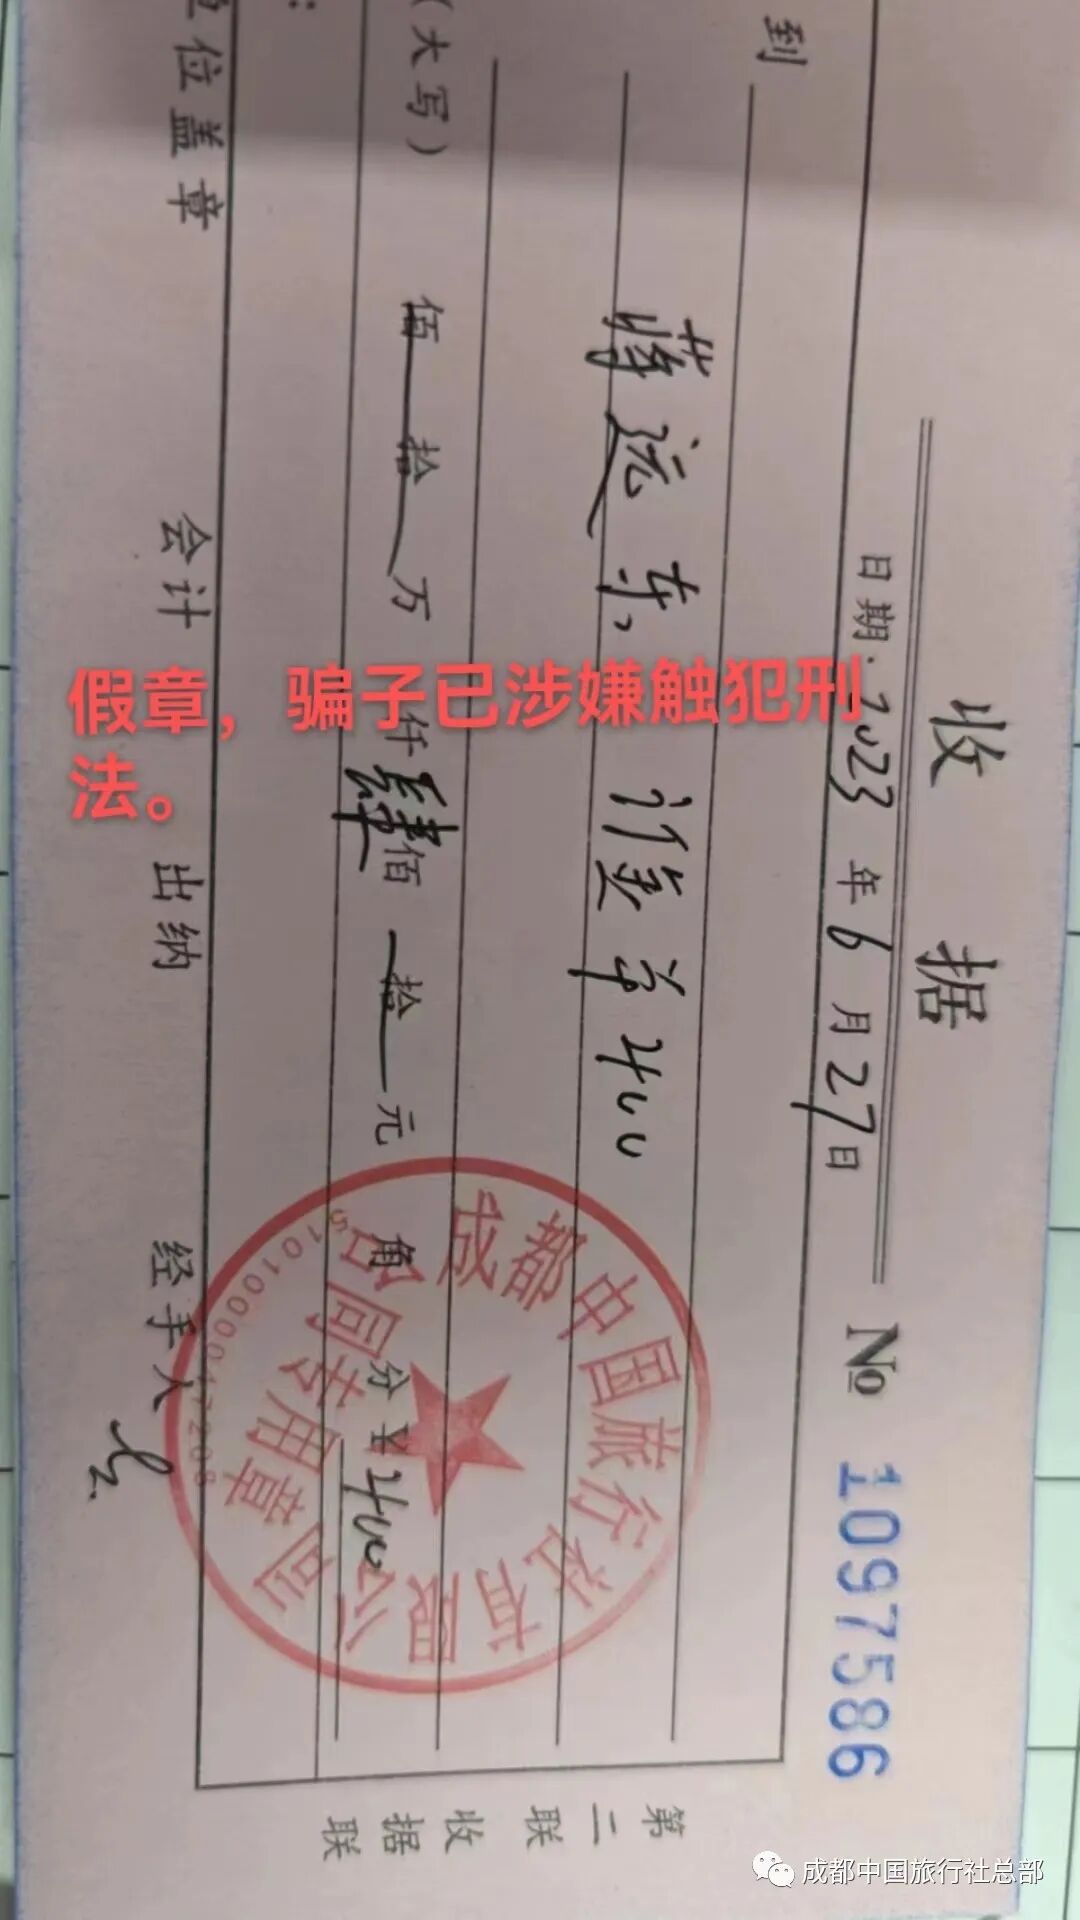 收 据
日期:2023年6月27日
№ 1097586
到
蒋远东,
单400
(大写) 佰 拾 万 仟 肆 佰 拾 元 角 分 ¥400
位盖章 会计 出纳 经手人
第二联 收据联
成都中国旅行社有限公司
合同专用章
假章，骗子已涉嫌触犯刑
法。
成都中国旅行社总部